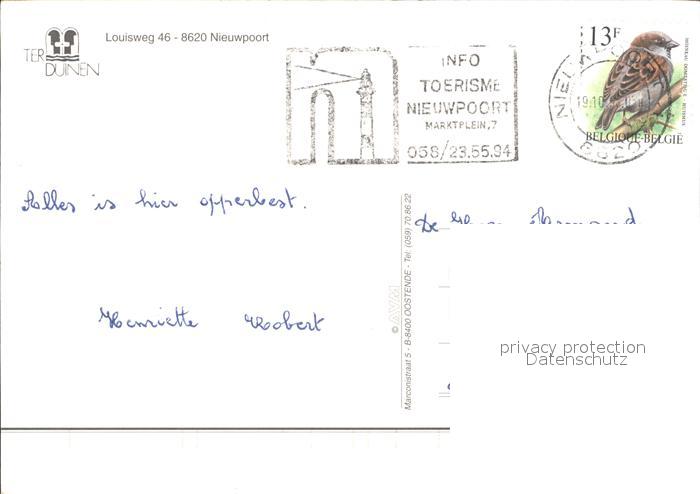 TER DUINEN
Louisweg 46 - 8620 Nieuwpoort
INFO
TOERISME
NIEUWPOORT
MARKTPLEIN,7
058/23.55.94
13F
BELGIQUE-BELGIË
8620
Alles is hier opperbest.
Henriette Robert
De
Marconistraat 5 - B-8400 OOSTENDE - Tel. (059) 70 86 22
© AVM
privacy protection
Datenschutz